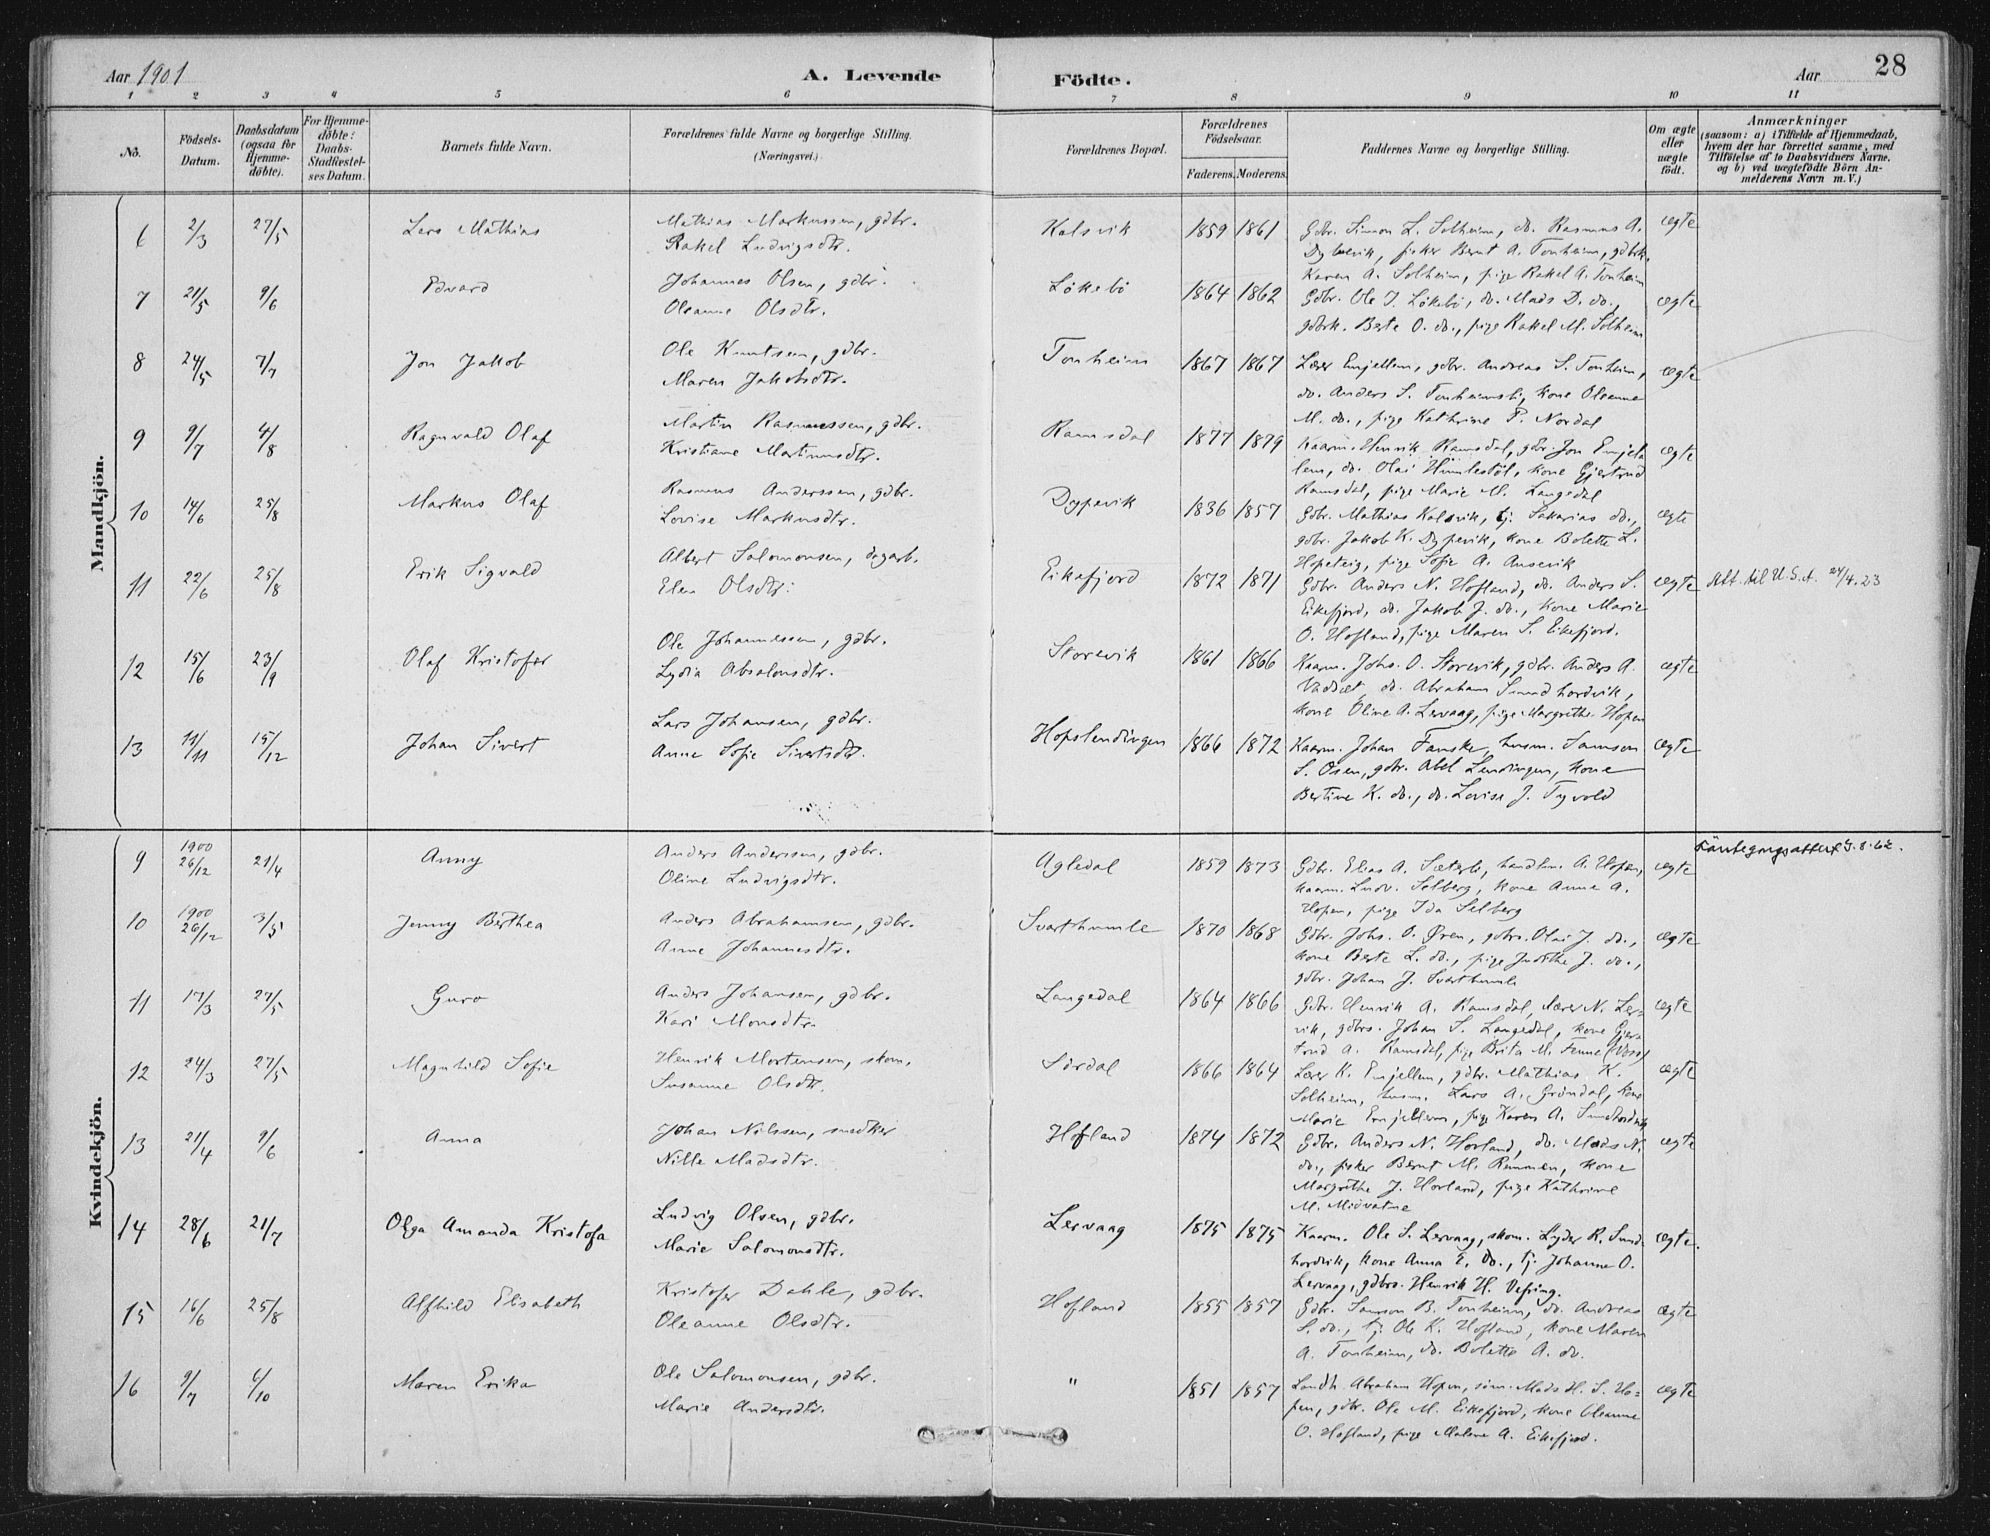 Aar 1901
A. Levende
Födte.
Aar
28
1 2 3 4 5 6 7 8 9 10 11
No.
Födsels-Datum.
Daabsdatum (ogsaa for Hjemme-döbte).
For Hjemme-döbte: Daabs-Stadfæstel-ses Datum.
Barnets fulde Navn.
Forældrenes fulde Navne og borgerlige Stilling. (Næringsvei.)
Forældrenes Bopæl.
Forældrenes Födselsaar.
Faderens. Moderens.
Faddernes Navne og borgerlige Stilling.
Om ægte eller uægte födt.
Anmærkninger
(saasom: a) i Tilfælde af Hjemmedaab, hvem der har forrettet samme, med Tilföielse af to Daabsvidners Navne, og b) ved uægtefödte Börn Anmelderens Navn m. V.)
Mandkjön.
6 2/3 27/5 Lars Mathias Mathias Markussen, gdbr. Kalsvik 1859 1861 Gdbr. Simon L. Solheim, do. Rasmus A. ægte
Rakel Ludvigsdtr. Dypevik, fisker Bernt A. Tonheim, gdbrk.
Karen A. Solheim, pige Rakel A. Tonheim
7 21/5 9/6 Edvard Johannes Olsen, gdbr. Lökebö 1864 1862 Gdbr. Ole J. Lökebö, do. Mads D. do., ægte
Oleanne Olsdtr. gdbrk. Berte O. do., pige Rakel M. Solheim
8 24/5 7/7 Jon Jakob Ole Knutsen, gdbr. Tonheim 1867 1867 Lærer Emjellem, gdbr. Andreas S. Tonheim, ægte
Maren Jakobsdtr. do. Anders S. Tonheimsli, kone Oleanne
M. do., pige Kathrine P. Nordal
9 9/7 4/8 Ragnvald Olaf Martin Rasmussen, gdbr. Ramsdal 1877 1879 Kaarm. Henrik Ramsdal, gdbr. Jon Emjel- ægte
Kristiane Martinusdtr. lem, do. Olai Humlestöl, kone Gjertrud
Ramsdal, pige Marie M. Langedal
10 14/6 25/8 Markus Olaf Rasmus Anderssen, gdbr. Dypevik 1836 1857 Gdbr. Mathias Kalsvik, tj. Sakarias do., ægte
Lovise Markusdtr. gdbr. Jakob K. Dypevik, kone Bolette L.
Hopeteig, pige Sofie A. Ausevik
11 22/6 25/8 Erik Sigvald Albert Salomonsen, dagarb. Eikefjord 1872 1871 Gdbr. Anders N. Hofland, do. Anders S. ægte Att. til U.S.A. 24/4.23
Elen Olsdtr. Eikefjord, do. Jakob J. do., kone Marie
O. Hofland, pige Maren S. Eikefjord.
12 15/6 23/9 Olaf Kristofer Ole Johannessen, gdbr. Storevik 1861 1866 Kaarm. Johs. O. Storevik, gdbr. Anders A. ægte
Lydia Absalonsdtr. do. Abraham Sundhordvik,
kone Oline A. Lervaag, pige Margrethe Hopen
13 11/11 15/12 Johan Sivert Lars Johansen, gdbr. Hopslendingen 1866 1872 Kaarm. Johan Fauske, husm. Samson ægte
Anne Sofie Sivertsdtr. S. Osen, gdbr. Abel Lendingen, kone
Bertine K. do., do. Lovise J. Tyvold
Kvindekjön.
9 1900 26/12 21/4 Anny Anders Anderssen, gdbr. Ugledal 1859 1873 Gdbr. Elias A. Sæterli, handlm. A. Hopen, ægte
Oline Ludvigsdtr. kaarm. Ludv. Selberg, kone Anne A.
Hopen, pige Ida Selberg
10 1900 26/12 3/5 Jenny Berthea Anders Abrahamsen, gdbr. Svarthumle 1870 1868 Gdbr. Johs. O. Øren, gdbrs. Olai J. do., ægte
Anne Johannesdtr. kone Berte L. do., pige Judithe J. do.,
gdbr. Johan J. Svarthumle
11 17/3 27/5 Guro Anders Johansen, gdbr. Langedal 1864 1866 Gdbr. Henrik A. Ramsdal, lærer N. Ler- ægte
Kari Monsdtr. vik, gdbrs. Johan S. Langedal, kone Gjer-
trud A. Ramsdal, pige Brita M. Fenne (Voss)
12 24/3 27/5 Magnhild Sofie Henrik Mortensen, skom. Sördal 1866 1864 Lærer K. Emjellem, gdbr. Mathias K. ægte
Susanne Olsdtr. Solheim, husm. Lars A. Gröndal, kone
Marie Emjellem, pige Karen A. Sundhordvik
13 21/4 9/6 Anna Johan Nilssen, snedker Hofland 1874 1872 Gdbr. Anders N. Hovland, do. Mads N. ægte
Nille Madsdtr. do., fisker Bernt M. Rammen, kone
Margrethe J. Hovland, pige Kathrine
M. Midvatne
14 28/6 21/7 Olga Amanda Kristofa Ludvig Olsen, gdbr. Lervaag 1875 1875 Kaarm. Ole S. Lervaag, skom. Lyder R. Sund- ægte.
Marie Salomonsdtr. hordvik, kone Anna E. do., tj. Johanne O.
Lervaag, gdbrs. Henrik H. Vefring.
15 16/6 25/8 Alfhild Elisabeth Kristofer Dahle, gdbr. Hofland 1855 1857 Gdbr. Samson B. Tonheim, do. Andreas ægte
Oleanne Olsdtr. S. do., tj. Ole K. Hofland, kone Maren
A. Tonheim, do. Bolette A. do.
16 9/7 6/10 Maren Erika Ole Salomonsen, gdbr. " 1851 1857 Landh. Abraham Hopen, søn Mads H. S. Ho- ægte
Marie Andersdtr. pen, gdbr. Ole M. Eikefjord, kone Oleanne
O. Hofland, pige Malene A. Eikefjord.